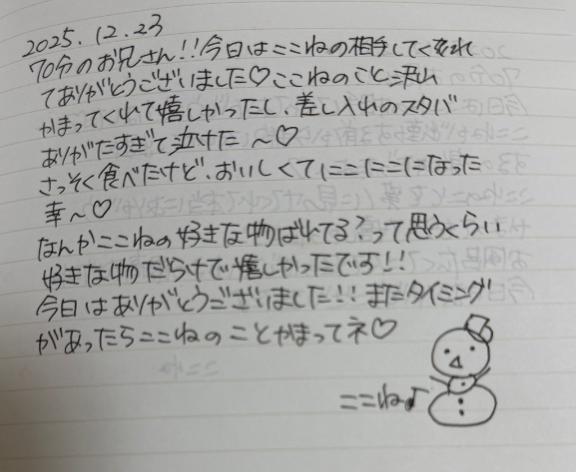 2025.12.23
70分のお兄さん!!今日はここねの相手してくれ
てありがとうございました♡ここねのこと沢山
かまってくれて嬉しかったし、差し入れのスタバ
ありがたすぎて泣けた〜♡
さっそく食べたけど、おいしくてにこにこになった
幸〜♡
なんかここねの好きな物ばれてる?って思うくらい
好きな物だらけで嬉しかったです!!
今日はありがとうございました!!またタイミング
があったらここねのことかまってネ♡
ここね♪